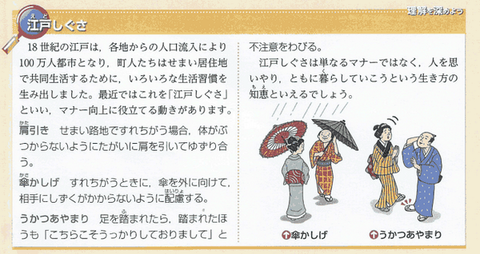 理解を深めよう
江戸しぐさ
18世紀の江戸は，各地からの人口流入により
100万人都市となり，町人たちはせまい居住地
で共同生活するために，いろいろな生活習慣を
生み出しました。最近ではこれを「江戸しぐさ」
といい，マナー向上に役立てる動きがあります。
肩引き　せまい路地ですれちがう場合，体がぶ
つからないようにたがいに肩を引いてゆずり合
う。
傘かしげ　すれちがうときに，傘を外に向けて，
相手にしずくがかからないように配慮する。
うかつあやまり　足を踏まれたら，踏まれたほ
うも「こちらこそうっかりしておりまして」と
不注意をわびる。
江戸しぐさは単なるマナーではなく，人を思
いやり，ともに暮らしていこうという生き方の
知恵といえるでしょう。
傘かしげ
うかつあやまり